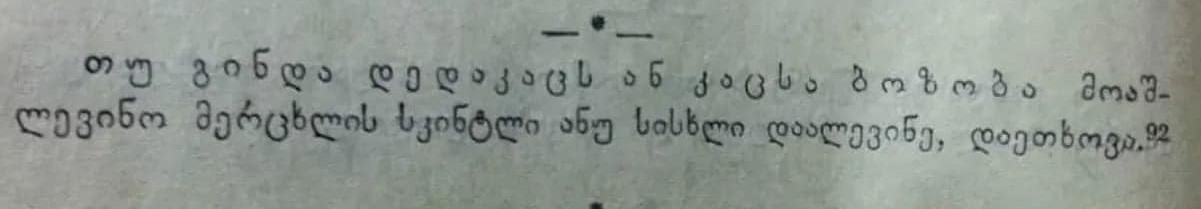 — • —
თუ გინდა დედაკაცს ან კაცსა ბოზობა მოაშ-
ლევინო მერცხლის სკინტლი ანუ სისხლი დაალევინე, დაეთხოვა.92